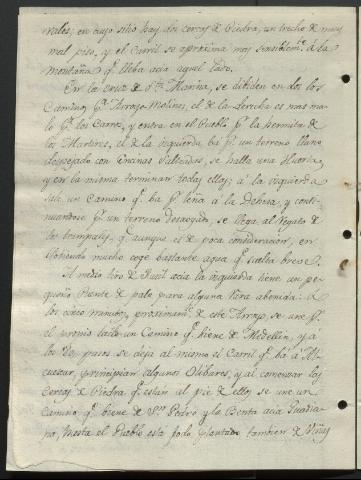 rales, en cuyo sitio hay dos cercas de Piedra, un trecho de muy
mal piso, y el Carril se aproxima muy sensiblem.te á la
montaña q.e lleba acia aquel lado.
En la cruz de S.ta Maria, se dibiden en dos los
Caminos p.a Arroyo Molinos, el de la derecha es mas malo
p.a los Carros, y entra en el Pueblo p.r la hermita de
los Martires, el de la izquierda bá p.r un terreno llano
despejado con Encinas salteadas, se halla una Huerta,
y en la misma terminan todas ellas; á la izquierda
sale un Camino q.e ba p.r leña á la dehesa, y conti-
nuandose p.r un terreno despejado, se llega al Regato de
los trampales, q.e aunque es de poca consideracion, en
llobiendo mucho coge bastante agua q.e suelta brebe.
Al medio tiro de Fusil acia la izquierda tiene un pe-
queño Puente de palo para alguna fiera abenida: á
los cinco minutos, proximam.te de este Arroyo, se une p.r
el propio lado un Camino q.e biene de Medellin, y a
los pasos se deja al mismo el Carril q.e bá á Al-
cuescar, principian algunos Olibares, y al comenzar las
cercas de Piedra q.e están al pie de ellos se une un
camino q.e biene de S.n Pedro y la Benta acia Guadia-
na, hasta el Pueblo esta todo plantado tambien de Viñas